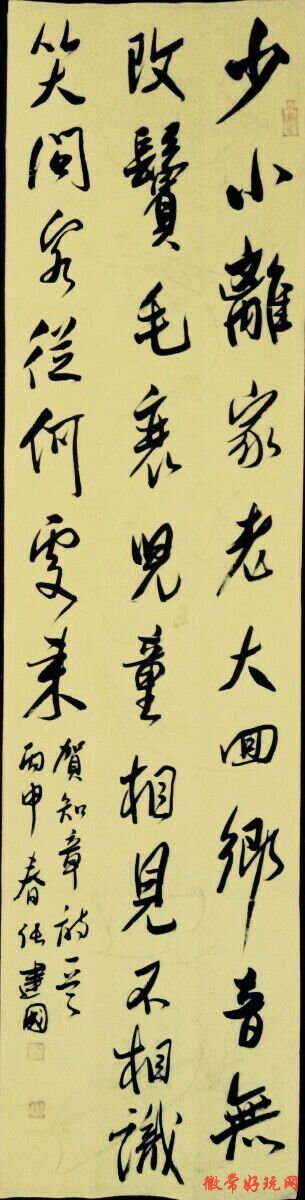 少小離家老大回鄉音無
改鬢毛衰兒童相見不相識
笑問客從何處來
賀知章詩一首
丙申春任建國
徽常好玩网